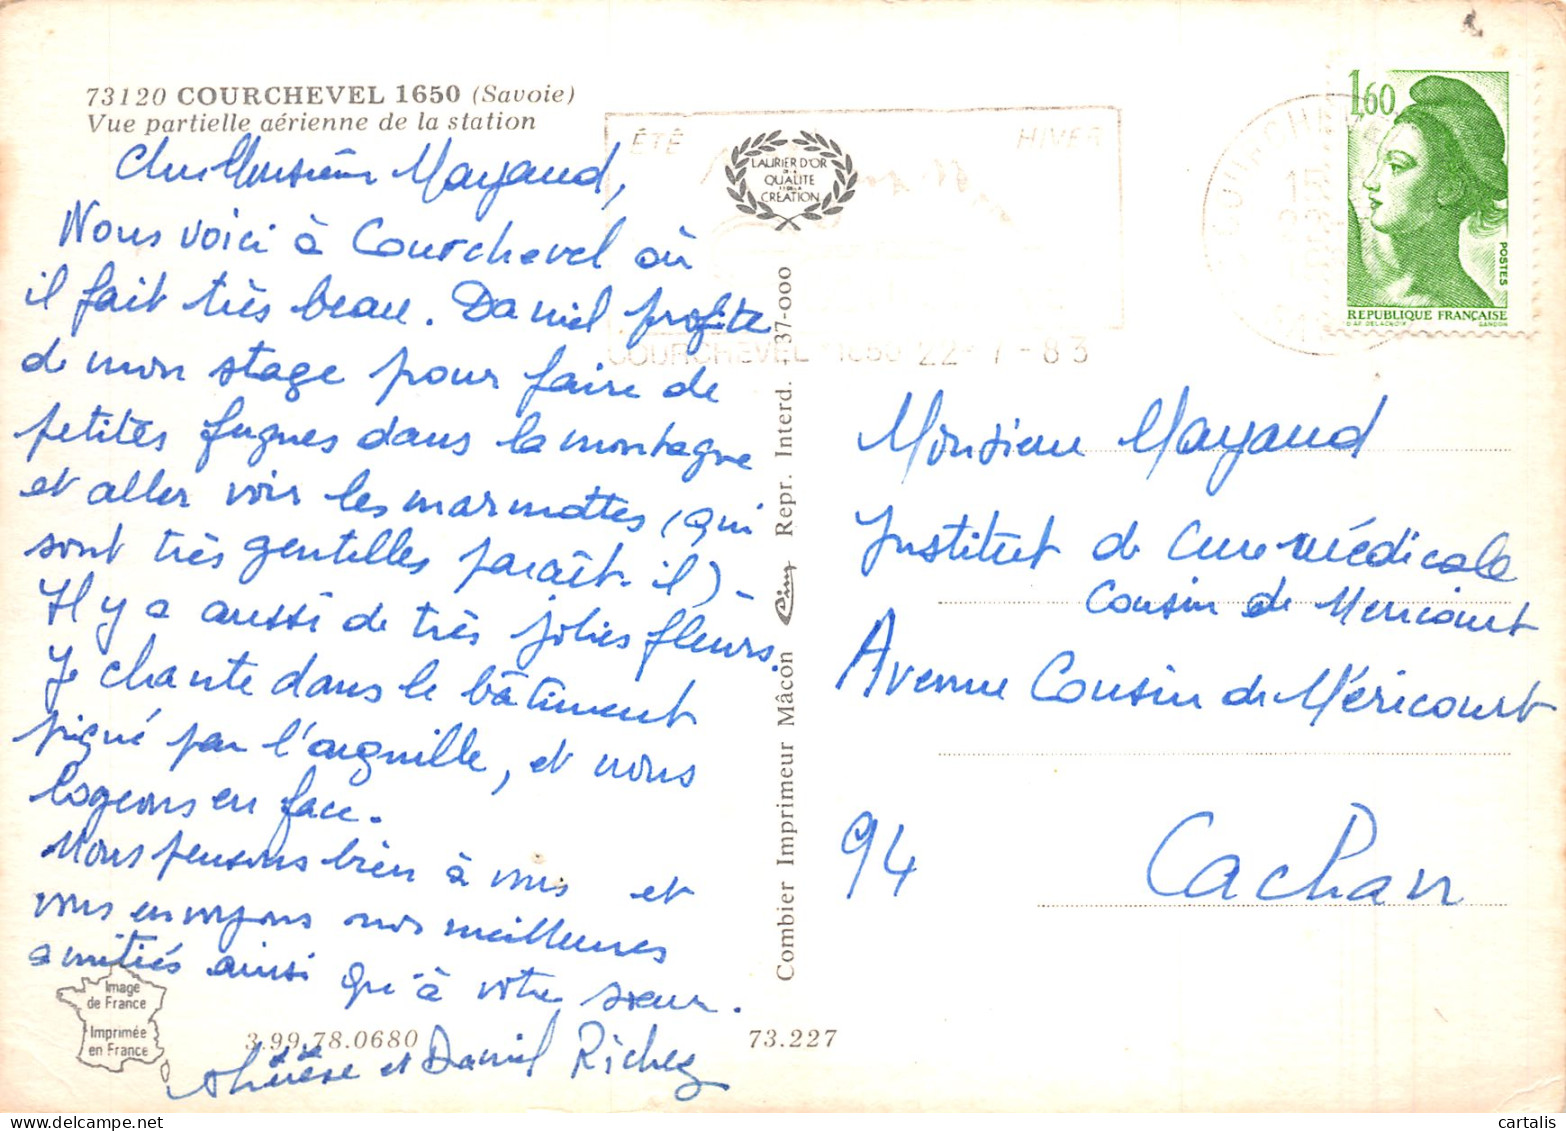 73120 COURCHEVEL 1650 (Savoie)
Vue partielle aérienne de la station
Cher Monsieur Mayaud,
Nous voici à Courchevel où
il fait très beau. Daniel profite
de mon stage pour faire de
petites fugues dans la montagne
et aller voir les marmottes (qui
sont très gentilles paraît-il).
Il y a aussi de très jolies fleurs.
Je chante dans le bâtiment
piqué par l'aiguille, et nous
logeons en face.
Nous pensons bien à vous et
vous envoyons nos meilleures
amitiés ainsi qu'à votre sœur.
Thérèse et Daniel Richez
Image
de France
Imprimée
en France
3.99.78.0680
73.227
Combier Imprimeur Mâcon Cim Repr. Interd. 37-000
ÉTÉ
HIVER
LAURIER D'OR
DE LA
QUALITE
ET DE LA
CREATION
COURCHEVEL 1650 22-7-83
COURCHEVEL
1,60
POSTES
REPUBLIQUE FRANÇAISE
D'AP. DELACROIX
GANDON
Monsieur Mayaud
Institut de Cure médicale
Cousin de Mericourt
Avenue Cousin de Méricourt
94 Cachan
cartalis.com